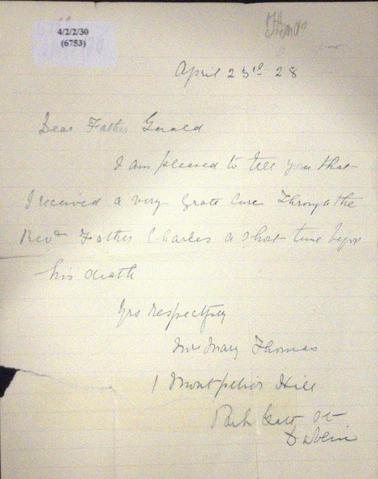 4/2/2/30
(6753)
April 23rd 28
Dear Father Gerald
I am pleased to tell you that
I received a very Grate Cure Through the
Revd Father Charles a short time before
his death
Yrs respectfuly
Mrs Mary Thomas
1 Montpelier Hill
Park Gate St
Dublin